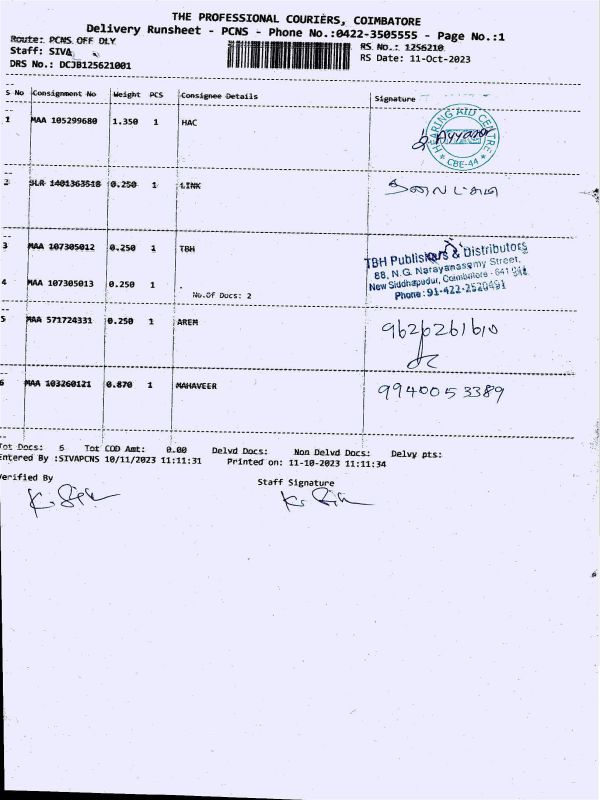 THE PROFESSIONAL COURIERS, COIMBATORE
Delivery Runsheet - PCNS - Phone No.:0422-3505555 - Page No.:1
Route: PCNS OFF DLY
RS No.: 1256210
Staff: SIVA
RS Date: 11-Oct-2023
DRS No.: DCJB125621001
S No Consignment No Weight PCS Consignee Details Signature
1 MAA 105299680 1.350 1 HAC
HEARING AID CENTRE
Ayyanar
* CBE-44 *
2 SLR 1401363518 0.250 1 LINK
3 MAA 107305012 0.250 1 TBH
TBH Publishers & Distributors
88, N.G. Narayanasamy Street,
New Siddhapudur, Coimbatore - 641 044.
Phone: 91-422-2520491
4 MAA 107305013 0.250 1
No.Of Docs: 2
5 MAA 571724331 0.250 1 AREM
9626261610
6 MAA 103260121 0.870 1 MAHAVEER
9940053389
Tot Docs: 6 Tot COD Amt: 0.00 Delvd Docs: Non Delvd Docs: Delvy pts:
Entered By :SIVAPCNS 10/11/2023 11:11:31 Printed on: 11-10-2023 11:11:34
Verified By
Staff Signature